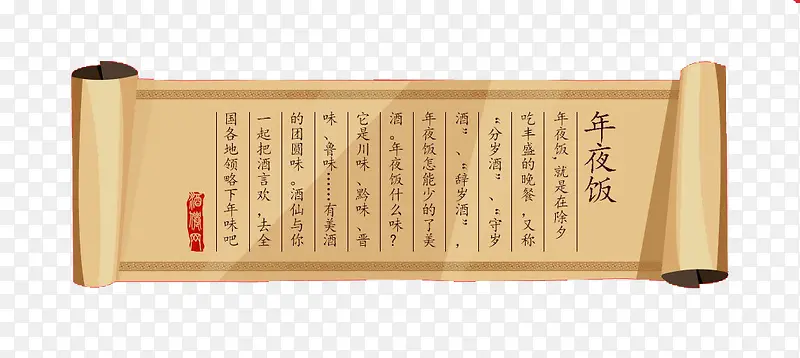 年夜饭
年夜饭,就是在除夕
吃丰盛的晚餐,又称
“分岁酒”、“守岁
酒”、“辞岁酒”,
年夜饭怎能少的了美
酒。年夜饭什么味?
它是川味、黔味、晋
味、鲁味……有美酒
的团圆味。酒仙与你
一起把酒言欢,去全
国各地领略下年味吧